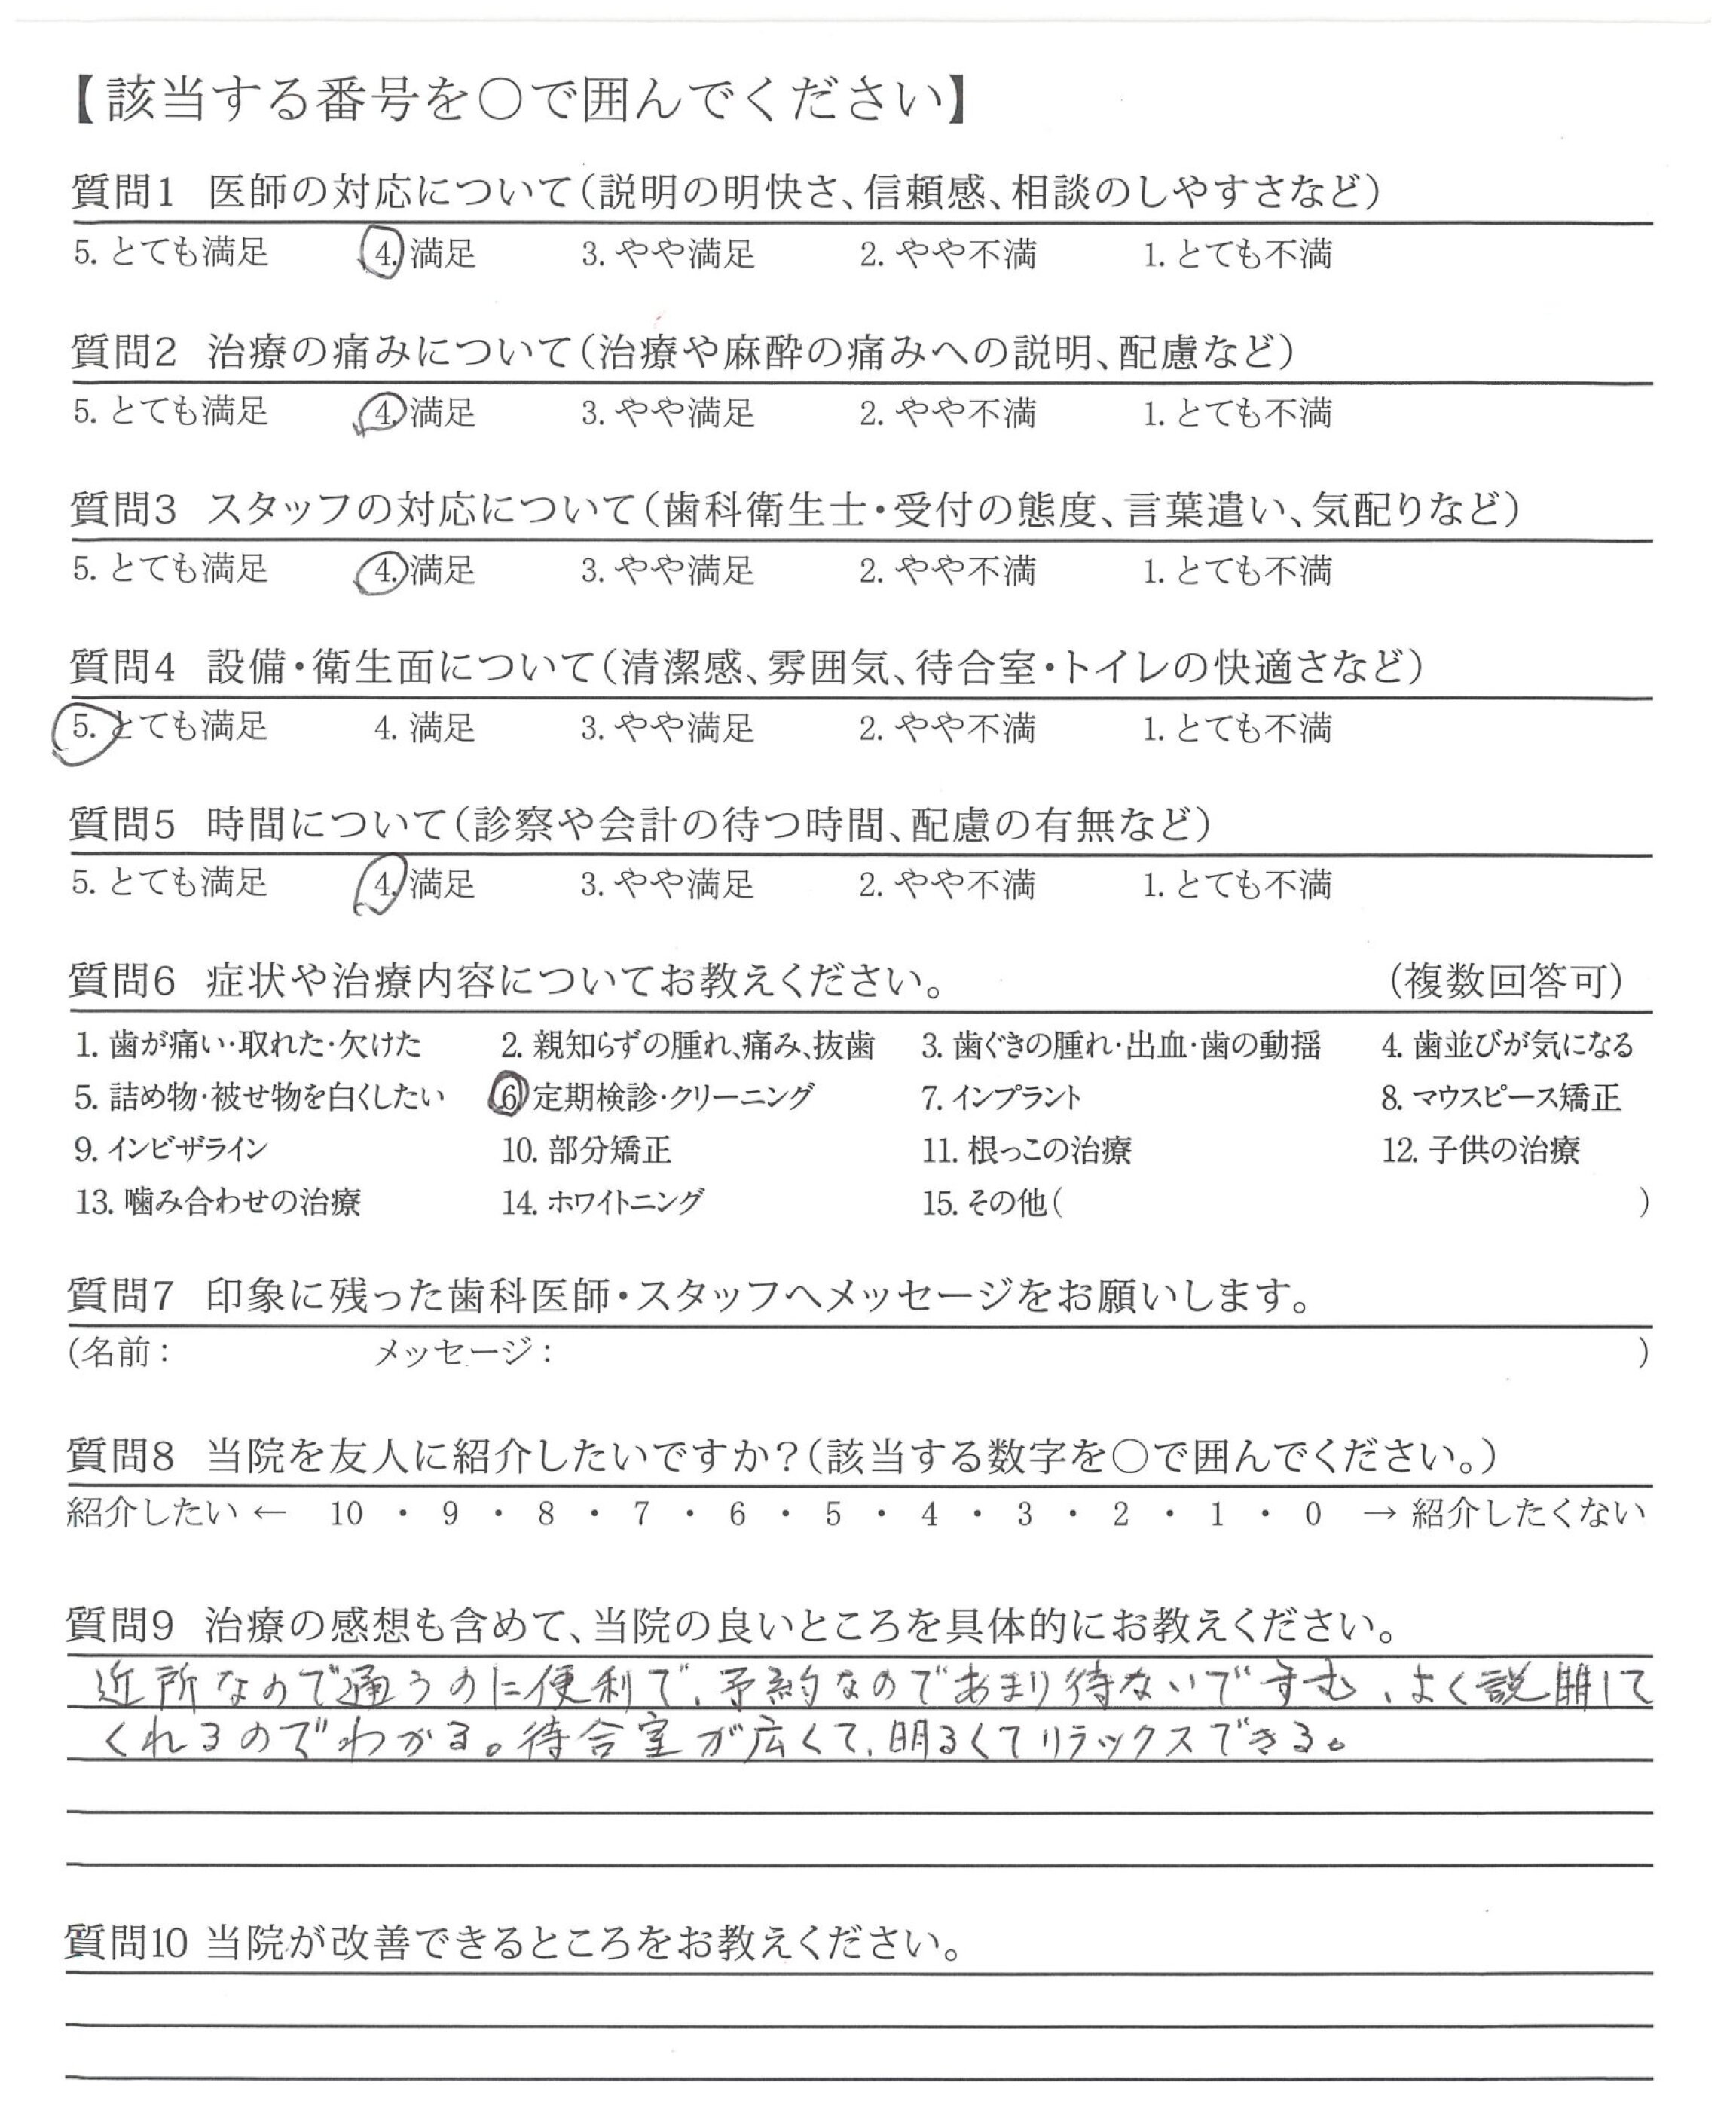 【該当する番号を○で囲んでください】
質問1 医師の対応について(説明の明快さ、信頼感、相談のしやすさなど)
5. とても満足 4. 満足 3. やや満足 2. やや不満 1. とても不満
質問2 治療の痛みについて(治療や麻酔の痛みへの説明、配慮など)
5. とても満足 4. 満足 3. やや満足 2. やや不満 1. とても不満
質問3 スタッフの対応について(歯科衛生士・受付の態度、言葉遣い、気配りなど)
5. とても満足 4. 満足 3. やや満足 2. やや不満 1. とても不満
質問4 設備・衛生面について(清潔感、雰囲気、待合室・トイレの快適さなど)
5. とても満足 4. 満足 3. やや満足 2. やや不満 1. とても不満
質問5 時間について(診察や会計の待つ時間、配慮の有無など)
5. とても満足 4. 満足 3. やや満足 2. やや不満 1. とても不満
質問6 症状や治療内容についてお教えください。 (複数回答可)
1. 歯が痛い・取れた・欠けた 2. 親知らずの腫れ、痛み、抜歯 3. 歯ぐきの腫れ・出血・歯の動揺 4. 歯並びが気になる
5. 詰め物・被せ物を白くしたい 6 定期検診・クリーニング 7. インプラント 8. マウスピース矯正
9. インビザライン 10. 部分矯正 11. 根っこの治療 12. 子供の治療
13. 噛み合わせの治療 14. ホワイトニング 15. その他( )
質問7 印象に残った歯科医師・スタッフへメッセージをお願いします。
(名前: メッセージ: )
質問8 当院を友人に紹介したいですか?(該当する数字を○で囲んでください。)
紹介したい ← 10 ・ 9 ・ 8 ・ 7 ・ 6 ・ 5 ・ 4 ・ 3 ・ 2 ・ 1 ・ 0 → 紹介したくない
質問9 治療の感想も含めて、当院の良いところを具体的にお教えください。
近所なので通うのに便利で、予約なのであまり待ないですむ、よく説明して
くれるのでわかる。待合室が広くて、明るくてリラックスできる。
質問10 当院が改善できるところをお教えください。